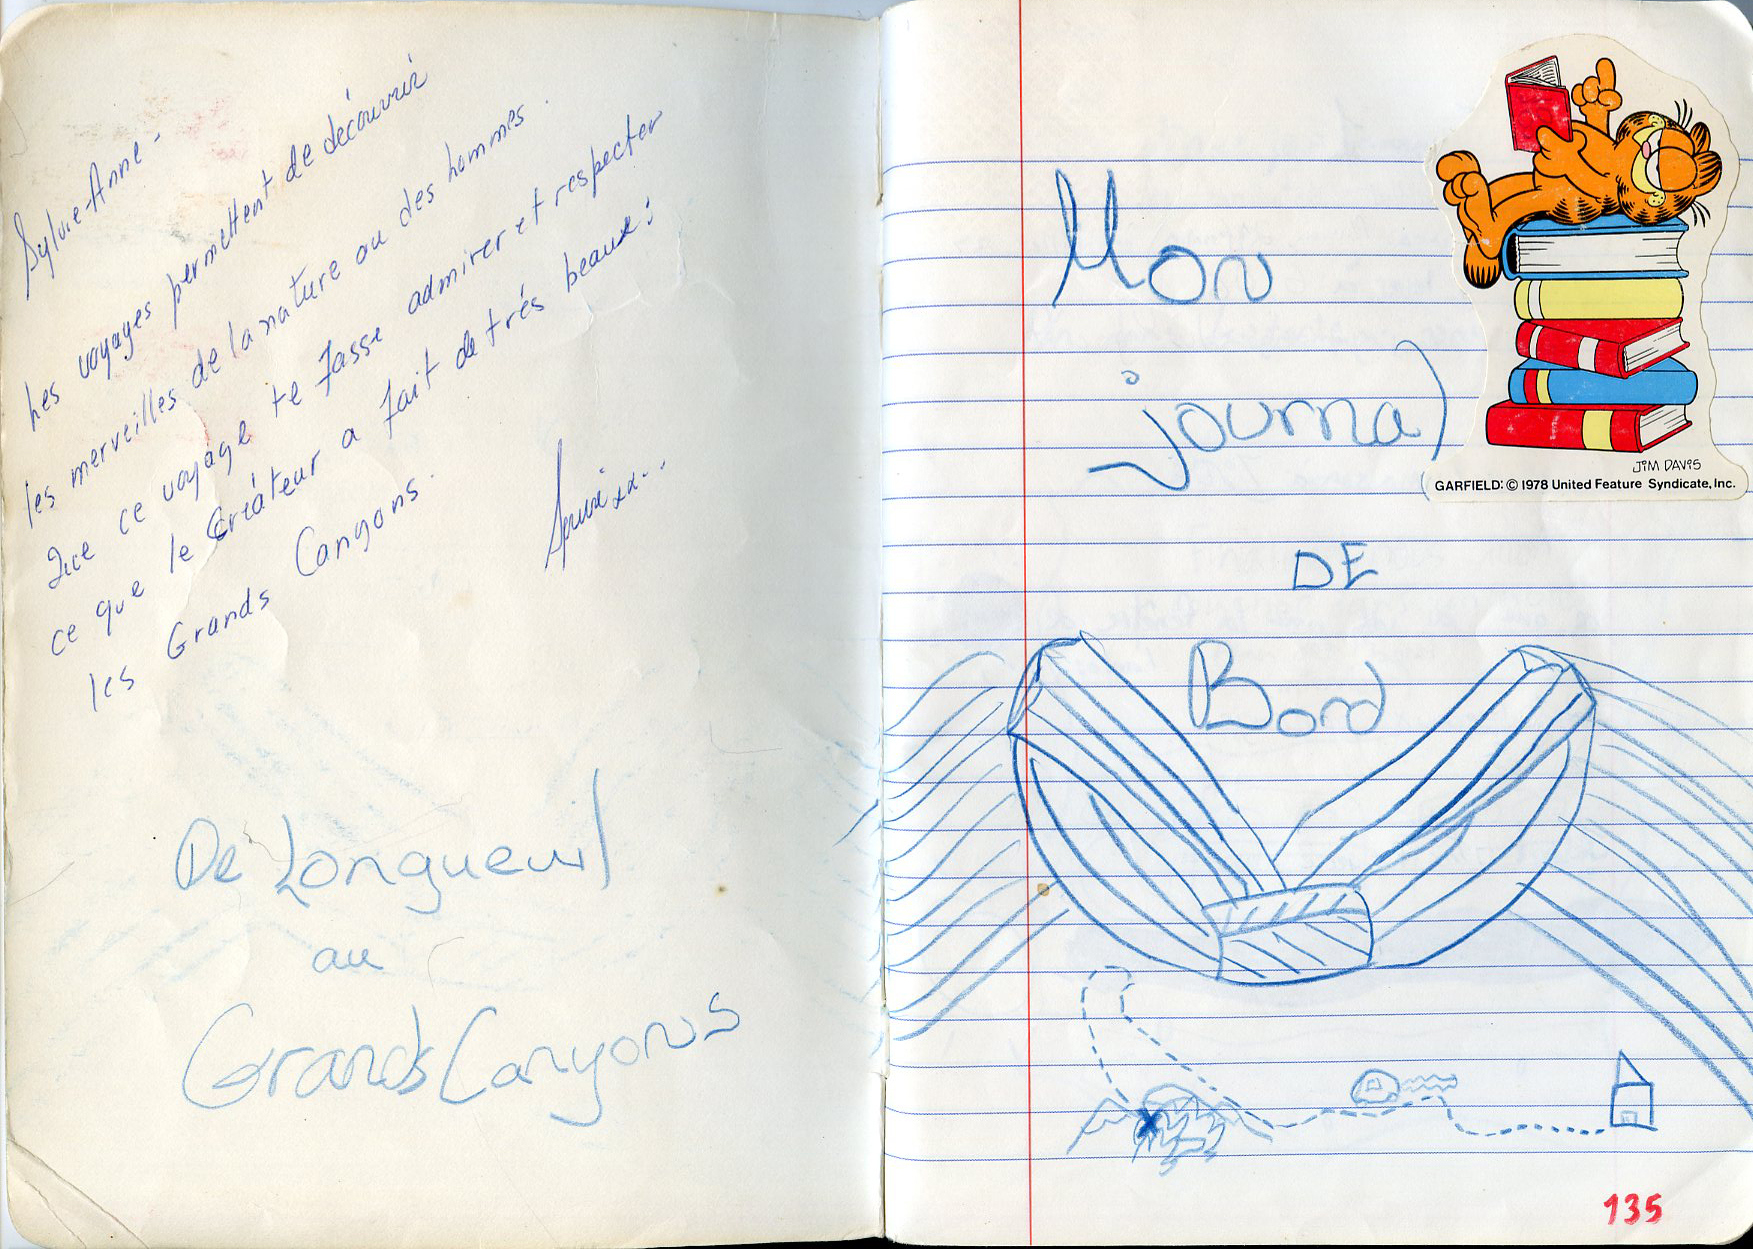 Sylvie-Anne -
Les voyages permettent de découvrir
les merveilles de la nature ou des hommes.
Que ce voyage te fasse admirer et respecter
ce que le Créateur a fait de très beaux:
les Grands Canyons.
De Longueuil
au
Grands Canyons
Mon
journal
DE
Bord
JIM DAVIS
GARFIELD: © 1978 United Feature Syndicate, Inc.
135